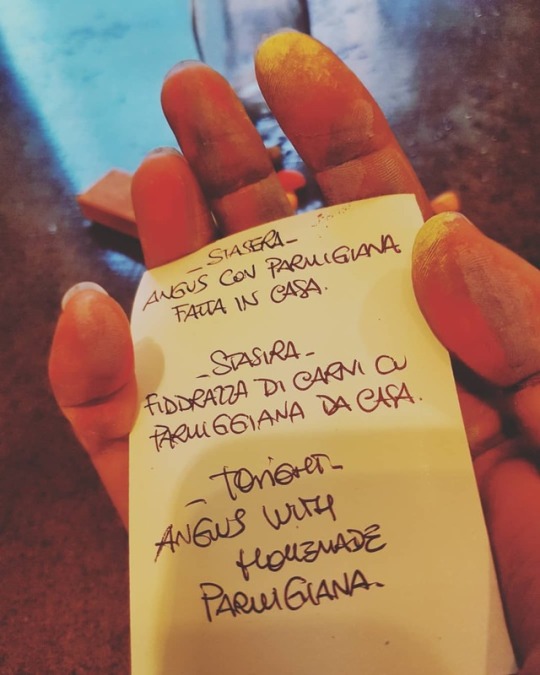 - STASERA -
ANGUS CON PARMIGIANA
FATTA IN CASA.
- STASIRA -
FIDDRAZZA DI CARNI CU
PARMIGGIANA DA CASA.
- TONIGHT -
ANGUS WITH
HOMEMADE
PARMIGIANA.